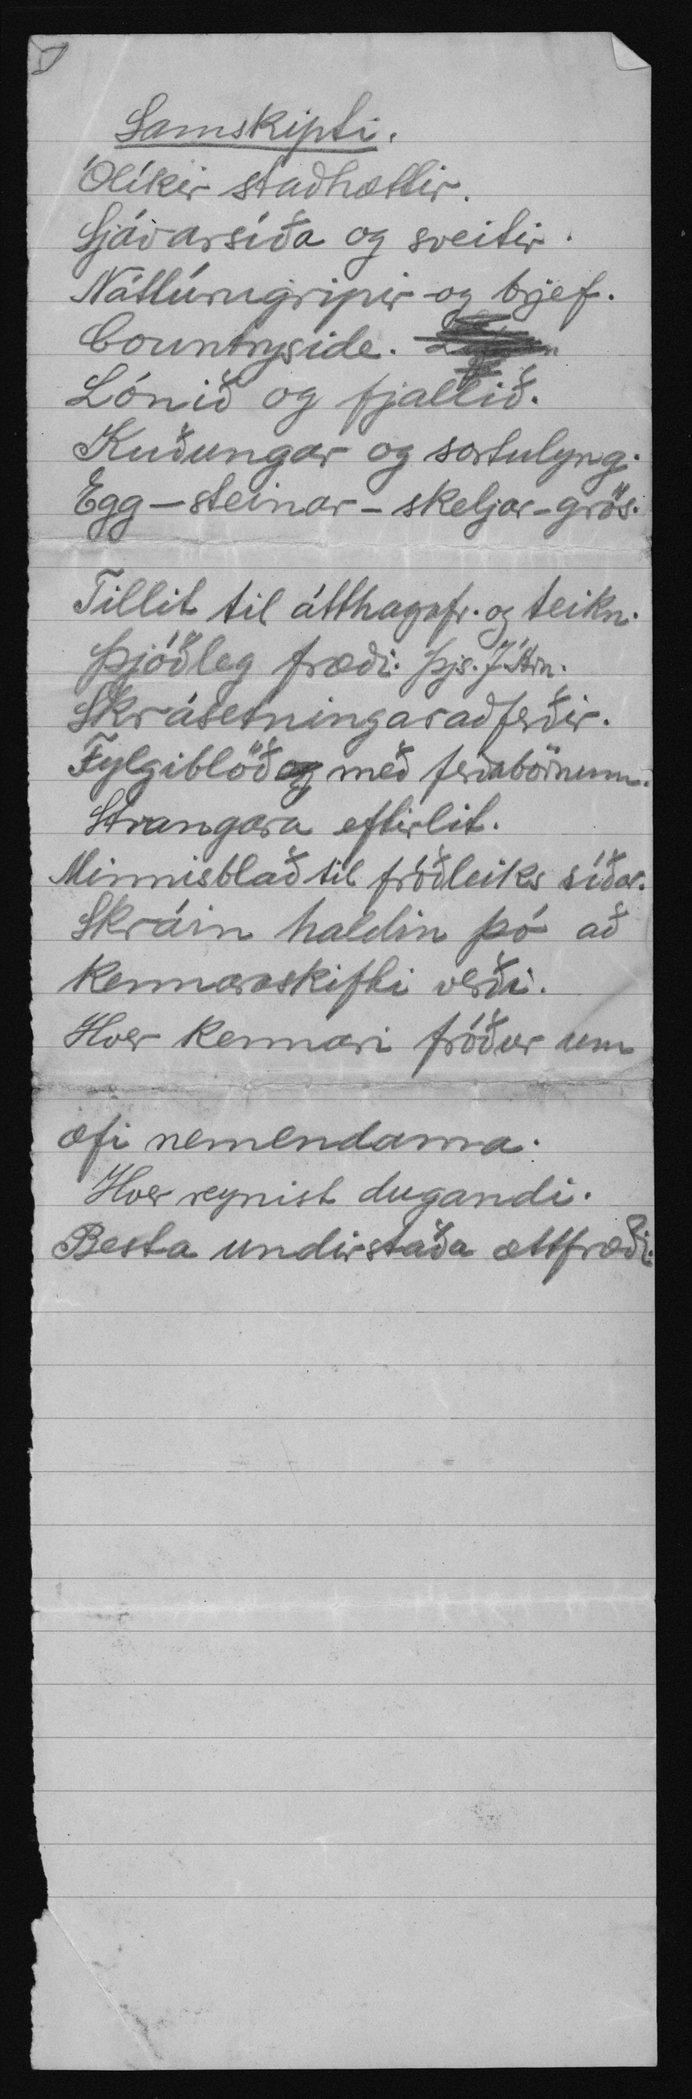 Samskipti.
Ólíkir staðhættir.
Sjávarsíða og sveitir.
Náttúrugripir og brjef.
Countryside.
Lónið og fjallið.
Kuðungar og sortulyng.
Egg – steinar – skeljar – grös.
Tillit til átthagafr. og teikn.
Þjóðleg fræði. Þjs. J. Árn.
Skrásetningaraðferðir.
Fylgiblöð með ferðabörnum.
Strangara eftirlit.
Minnisblað til fróðleiks síðar.
Skráin haldin þó að
kennaraskifti verði.
Hver kennari fróður um
æfi nemendanna.
Hver reynist dugandi.
Besta undirstaða ættfræði.